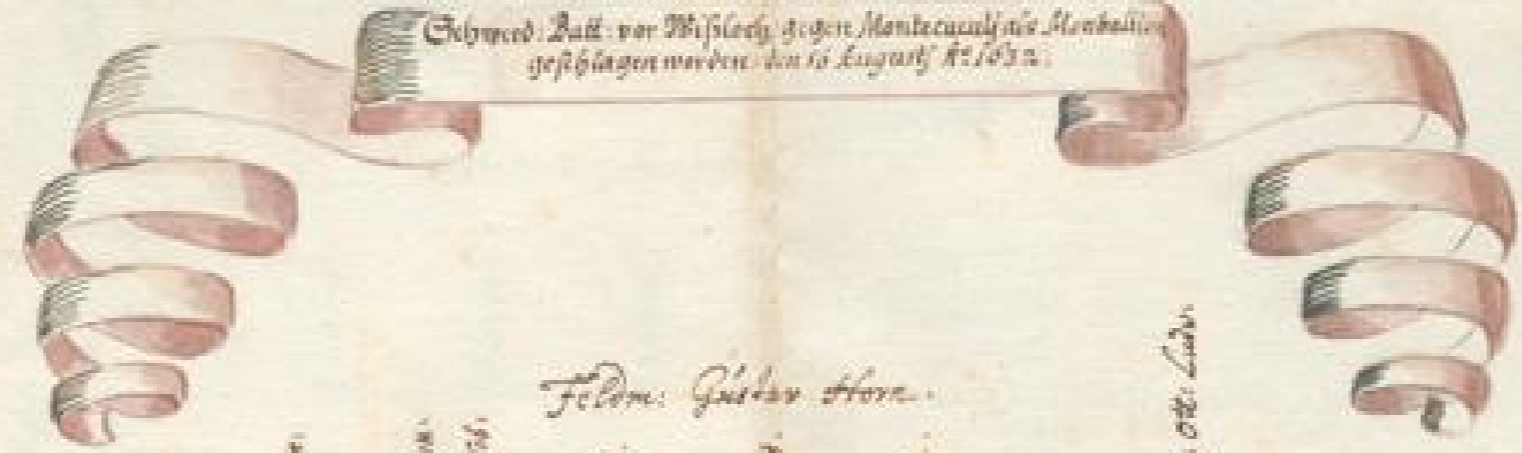 Schwed: Batt: vor Wißloch, gegen Montecuculj als Monballion
geschlagen worden den 16 Augustj Aº 1632.
Feldm: Gustav Horn.
Ott: Ludw: